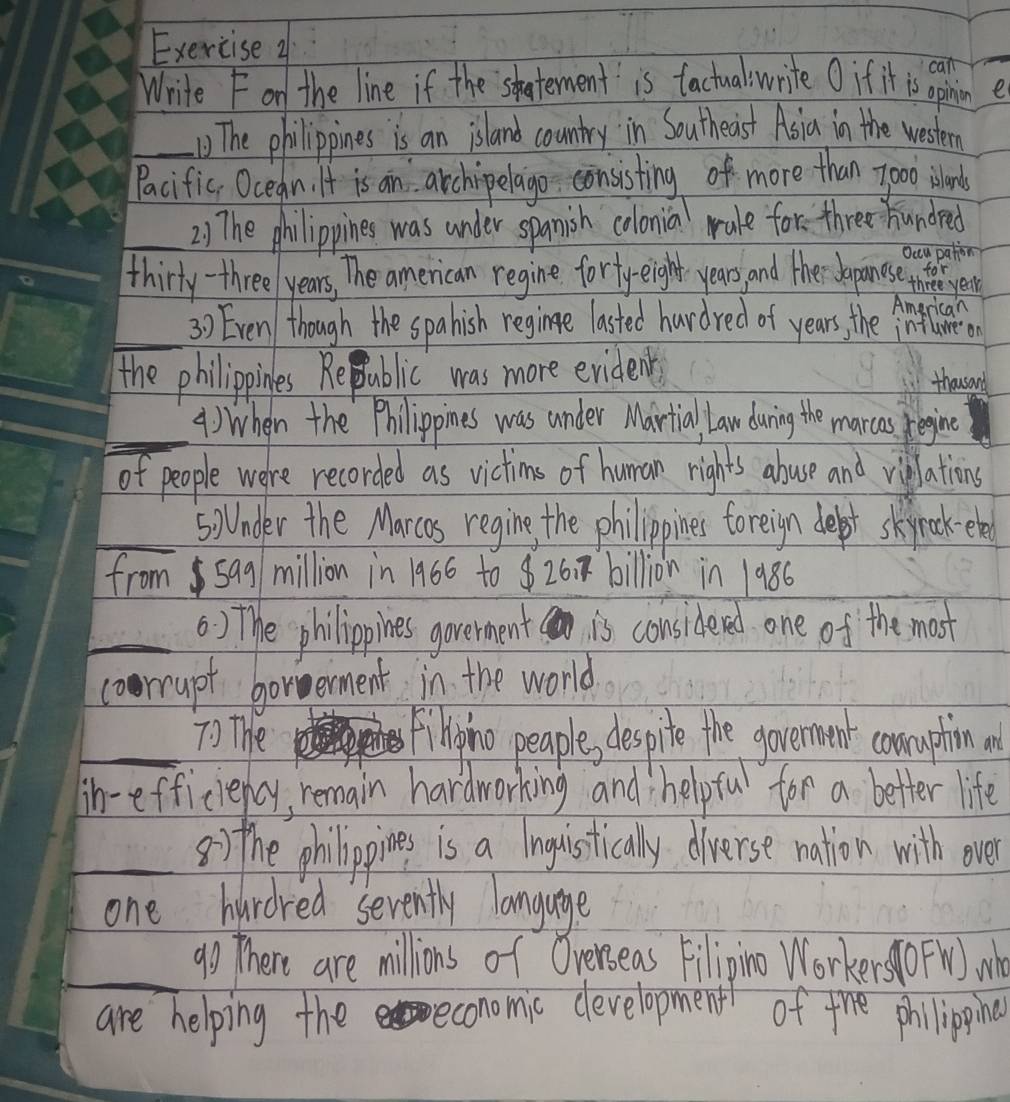 Exercise 2
Write F on the line if the statement is factual:write O if it is can opinion
1.) The philippines is an island country in Southeast Asia in the western
Pacific Ocean. It is an archipelago consisting of more than 7,000 islands
2.) The philippines was under spanish colonial rule for three hundred
thirty-three years, The american regine forty-eight years, and the Japanese Occupation for three year
3.) Even though the spahish regime lasted hurdred of years, the American on
the philippines Republic was more evident
4.) When the Philippines was under Martial Law during the marcos regine thousand
of people were recorded as victims of human rights abuse and violations
5.) Under the Marcos regine, the philippines foreign debt skyrock-eted
from $ 599 million in 1966 to $ 26.7 billion in 1986
6.) The philippines goverment is considered one of the most
coorrupt goverment in the world
7.) The Filipino peaple, despite the goverment courruption and
in-efficiency, remain hardworking and helpful for a better life
8.) The philippines is a lnguistically diverse nation with over
one hurdred seventy language
9.) There are millions of Overseas Filipino Workers (OFW) who
are helping the economic development of the philippines